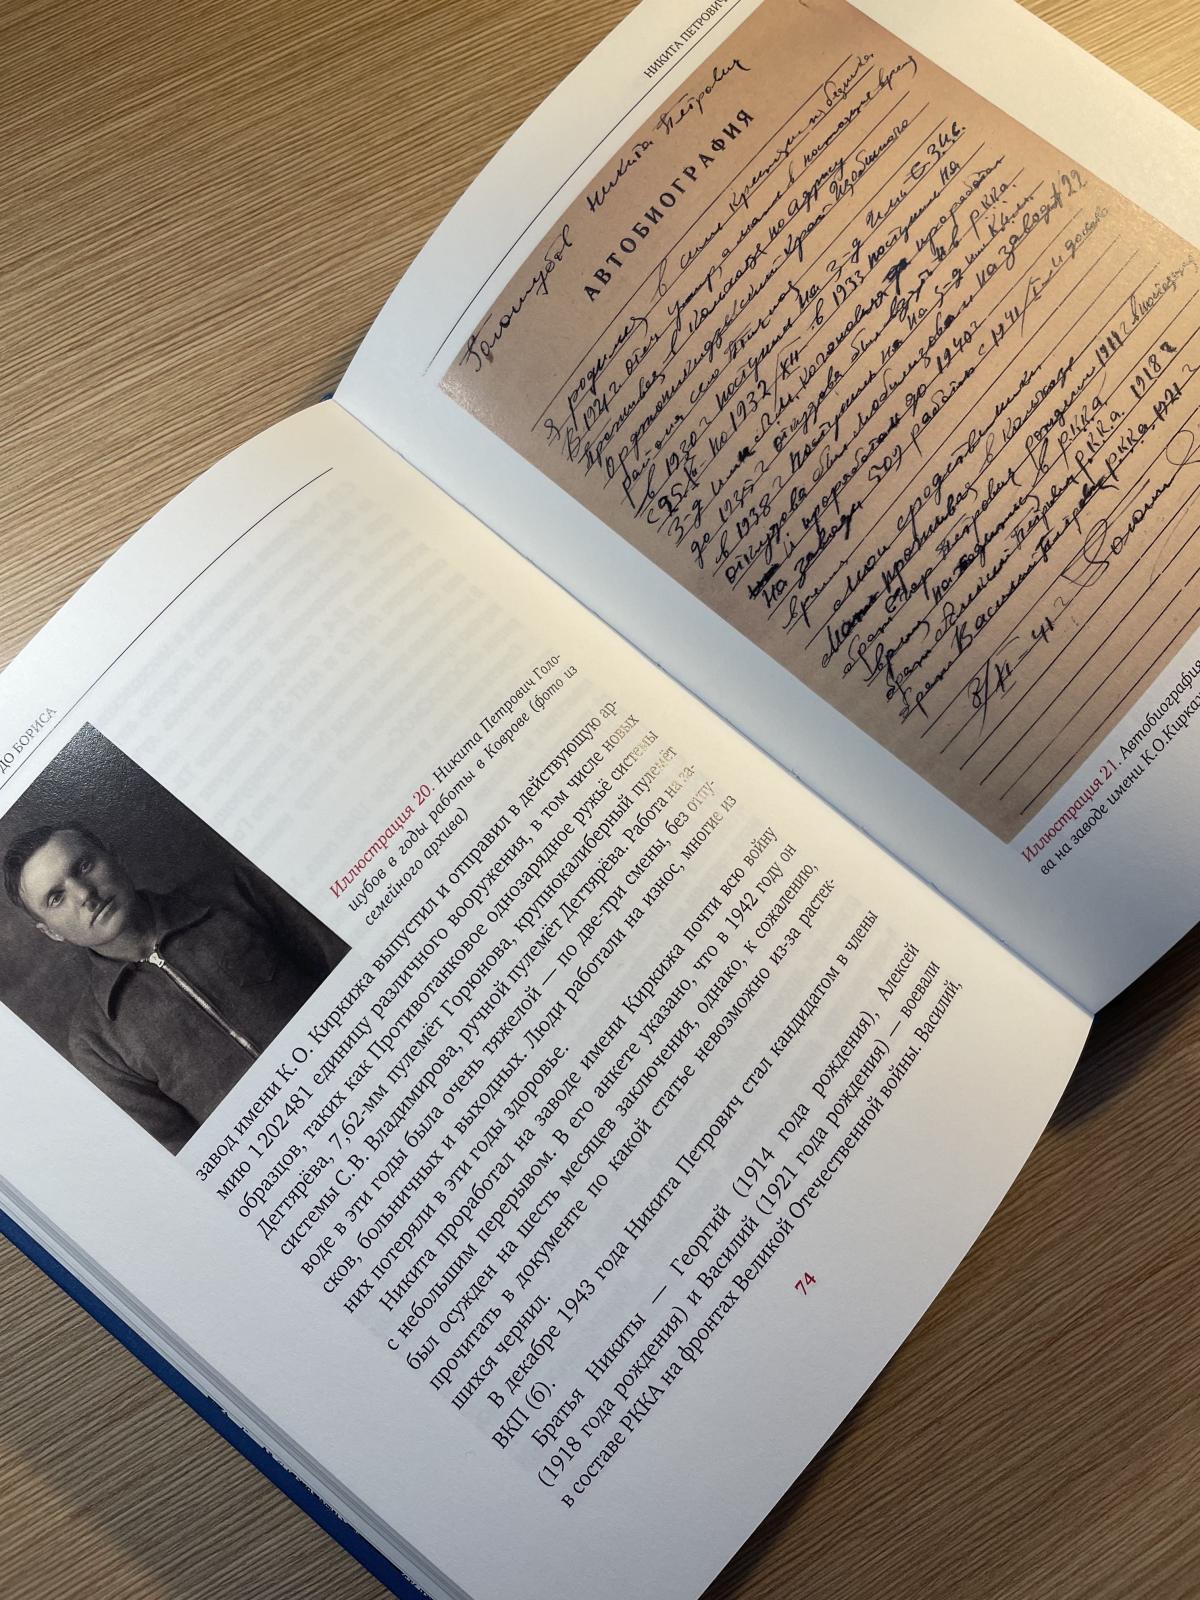 ДО БОРИСА
Иллюстрация 20. Никита Петрович Голо-
шубов в годы работы в Коврове (фото из
семейного архива)
завод имени К. О. Киркижа выпустил и отправил в действующую ар-
мию 1 202 481 единицу различного вооружения, в том числе новых
образцов, таких как Противотанковое однозарядное ружьё системы
Дегтярёва, 7,62-мм пулемёт Горюнова, крупнокалиберный пулемёт
системы С. В. Владимирова, ручной пулемёт Дегтярёва. Работа на за-
воде в эти годы была очень тяжелой — по две-три смены, без отпу-
сков, больничных и выходных. Люди работали на износ, многие из
них потеряли в эти годы здоровье.
Никита проработал на заводе имени Киркижа почти всю войну
с небольшим перерывом. В его анкете указано, что в 1942 году он
был осужден на шесть месяцев заключения, однако, к сожалению,
прочитать в документе по какой статье невозможно из-за растек-
шихся чернил.
В декабре 1943 года Никита Петрович стал кандидатом в члены
ВКП (б).
Братья Никиты — Георгий (1914 года рождения), Алексей
(1918 года рождения) и Василий (1921 года рождения) — воевали
в составе РККА на фронтах Великой Отечественной войны. Василий,
74
НИКИТА ПЕТРОВИЧ
Голошубов Никита Петрович
АВТОБИОГРАФИЯ
Я родился в семье крестьян
В 1924 г отец умер, а мать в настоящее время
проживает в колхозе по адресу
Орджоникидзевский край
района село
в 1930 г поступил на з-д
по 1932 в 1933 поступил на
з-д проработал
до 1935 г откуда был взят в РККА.
в 1938 г поступил на з-д им
откуда был мобилизован на завод № 22
и проработал до 1940 г
на заводе 509 работаю с 1941
время
Мои родственники
Мать проживает в колхозе
брат Егор Петрович рождения
время находится в РККА
брат Алексей Петрович РККА. 1918 г
брат Василий Петрович РККА 1921 г
Иллюстрация 21. Автобиография
ва на заводе имени К.О.Кирки